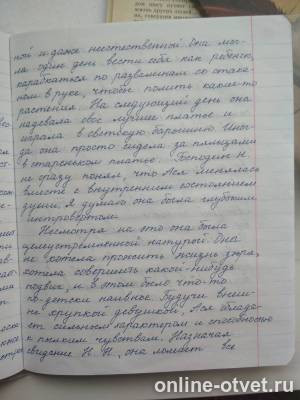 ной и даже неестественной. Она мог-
ла один день вести себя как ребенок,
карабкаться по развалинам со стака-
ном в руке, чтобы полить какие-то
растения. На следующий день она
надевала свое лучшее платье и
играла в светскую барышню. Иног-
да она просто сидела за пяльцами
в стареньком платье. Господин Н.
не сразу понял, что Ася менялась
вместе с внутренним состоянием
души. Я думаю, она была глубоким
интровертом.
Несмотря на это она была
целеустремленной натурой. Она
не хотела прожить жизнь зря,
хотела совершить какой-нибудь
подвиг, и в этом было что-то
по-детски наивное. Будучи внеш-
не хрупкой девушкой, Ася облада-
ет сильным характером и способностью
к пылким чувствам. Назначая
свидание Н. Н., она ломает все
online-otvet.ru